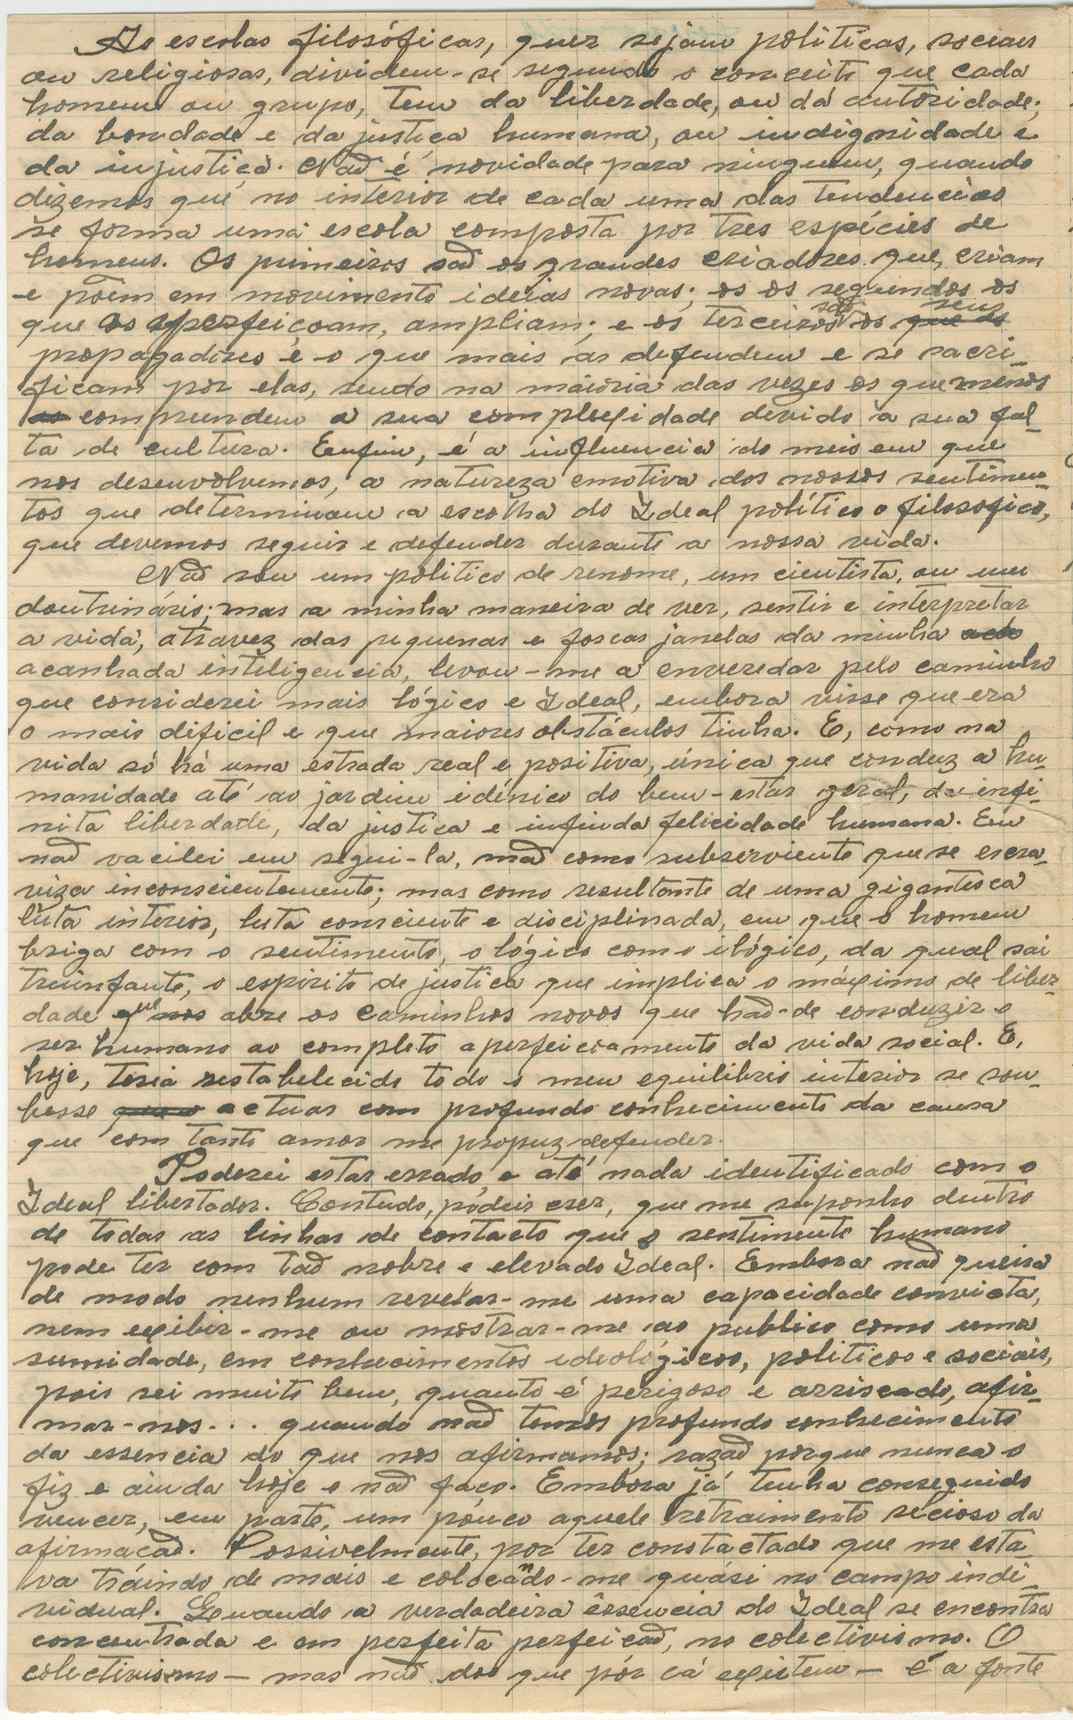 As escolas filosóficas, quer sejam políticas, sociais
ou religiosas, dividem-se segundo o conceito que cada
homem ou grupo, tem da liberdade, ou da autoridade;
da bondade e da justiça humana, ou indignidade e
da injustiça. Não é novidade para ninguem, quando
dizemos que no interior de cada uma das tendencias
se forma uma escola composta por tres espécies de
homens. Os primeiros são os grandes criadores que, criam
e põem em movimento ideias novas; os os segundos os
que as aperfeiçoam, ampliam; e os terceiros são os que os seus
propagadores e o que mais as defendem e se sacri-
ficam por elas, sendo na maioria das vezes os que menos
as comprendem a sua complexidade devido a sua fal-
ta de cultura. Enfim, é a influencia do meio em que
nos desenvolvemos, a natureza emotiva dos nossos sentimen-
tos que determinam a escolha do Ideal político o filosofico,
que devemos seguir e defender durante a nossa vida.
Não sou um politico de renome, um cientista, ou um
doutrinário; mas a minha maneira de ver, sentir e interpretar
a vida, atravez das pequenas e foscas janelas da minha
acanhada inteligencia, levou-me a enveredar pelo caminho
que considerei mais lógico e Ideal, embora visse que era
o mais dificil e que maiores obstáculos tinha. E, como na
vida só há uma estrada real e positiva, única que conduz a hu-
manidade até ao jardim idénico do bem-estar geral, da infi-
nita liberdade, da justiça e infinda felicidade humana. Eu
não vacilei em segui-la, não como subserviente que se escra-
viza inconscientemente; mas como resultante de uma gigantesca
luta interior, luta consciente e disciplinada, em que o homem
briga com o sentimento, o lógico com o ilógico, da qual sai
triunfante, o espirito de justiça que implica o máximo de liber-
dade que nos abre os caminhos novos que hão-de conduzir o
ser humano ao completo aperfeiçoamento da vida social. E,
hoje, teria restabelecido todo o meu equilibrio interior se sou-
besse que o actuar com profundo conhecimento da causa
que com tanto amor me propuz defender.
Poderei estar errado e até nada identificado com o
Ideal libertador. Contudo, podeis crer, que me suponho dentro
de todas as linhas de contacto que o sentimento humano
pode ter com tão nobre e elevado Ideal. Embora não queira
de modo nenhum revelar-me uma capacidade convicta,
nem exibir-me ou mostrar-me ao publico como uma
sumidade, em conhecimentos ideológicos, politicos e sociais,
pois sei muito bem, quanto é perigoso e arriscado, afir-
mar-nos... quando não temos profundo conhecimento
da essencia do que nos afirmamos; razão porque nunca o
fiz e ainda hoje o não faço. Embora já tenha conseguido
vencer, em parte, um pouco aquele retraimento recioso da
afirmação. Possivelmente, por ter constactado que me esta-
va traindo de mais e colocando-me quási no campo indi-
vidual. Quando a verdadeira essencia do Ideal se encontra
concentrada e em perfeita perfeição, no colectivismo. O
colectivismo — mas não dos que por cá existem — é a fonte